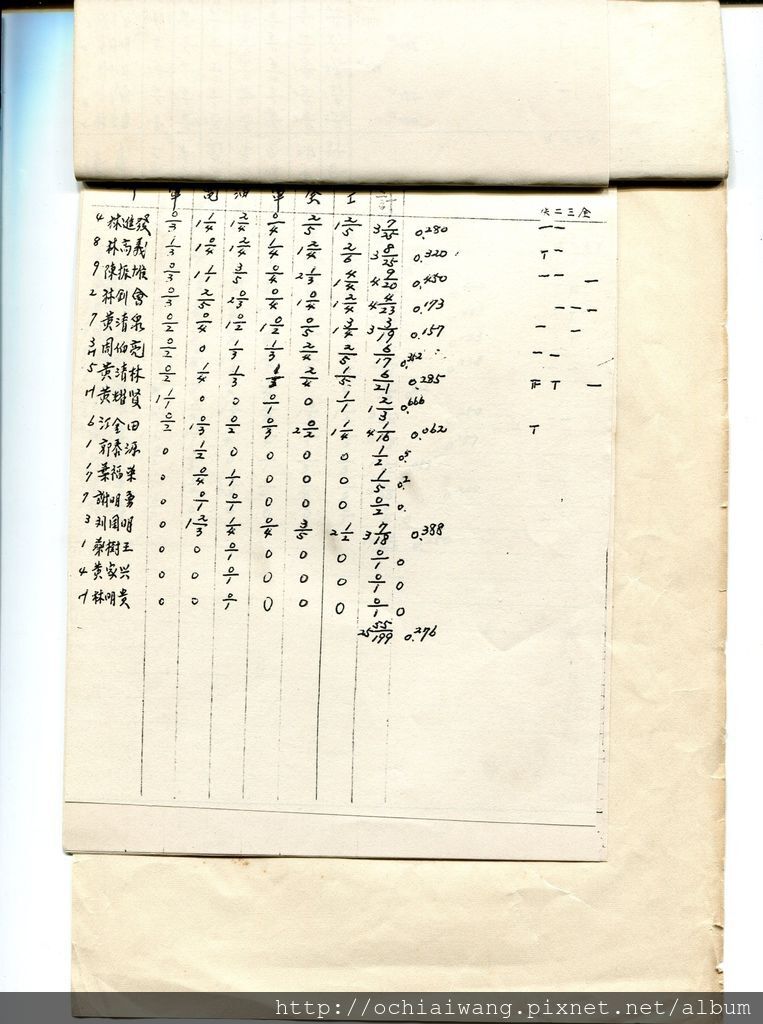 軍 油 軍 金 工 計 失二三全
4 林進發 0/3 1 1/4 1 2/4 0/4 2/5 1 2/5 3 7/25 0.280 一 一
8 林高義 1/3 1 0/4 1 2/4 1/4 1 2/4 2/6 3 8/25 0.320 T 一
9 陳振雄 0/3 1 1/1 3/5 0/4 2 1/3 1 4/4 4 9/20 0.450 一 一 一
2 林釗會 0/3 2/5 2 0/3 0/4 1 0/4 1 2/4 4 4/23 0.173 一 一 一
7 黃清泉 0/2 0/4 1 0/2 1 0/2 0/5 1 3/4 3 3/19 0.157 一 一
周伯亮 0/2 0 1/3 1/3 2/4 2/5 6/17 0.352 一 一
5 黃清林 0/2 1/4 1/3 2/4 1/5 6/21 0.285 正 T 一
黃耀賢 1 1/1 0 0 0/1 0 1/1 1 2/3 0.666
6 江金田 0/2 1 0/3 0/2 0/3 2 0/2 1 1/4 4 1/16 0.062 T
1 郭泰源 0 1/2 0 0 0 0 1/2 0.5
葉福榮 0 0/4 1/1 0 0 0 1/5 0.2
7 謝明勇 0 0/1 0/1 0 0 0 0/2 0.
3 刘国明 0 1 2/3 1/4 0/4 3/5 2 1/2 3 7/18 0.388
1 蔡樹王 0 0 0/1 0 0 0 0/1 0
4 黃家兴 0 0 0/1 0 0 0 0/1 0
林明貴 0 0 0/1 0 0 0 0/1 0
25 55/199 0.276
http://ochiaiwang.pixnet.net/album